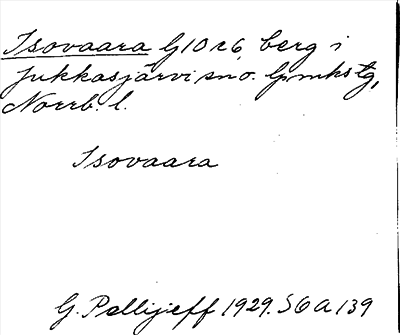 Isovaara G10 c6, berg i
Jukkasjärvi sn o. lpmkstg,
Norrb. l.
Isovaara
G. Pellijeff 1929. S6A139